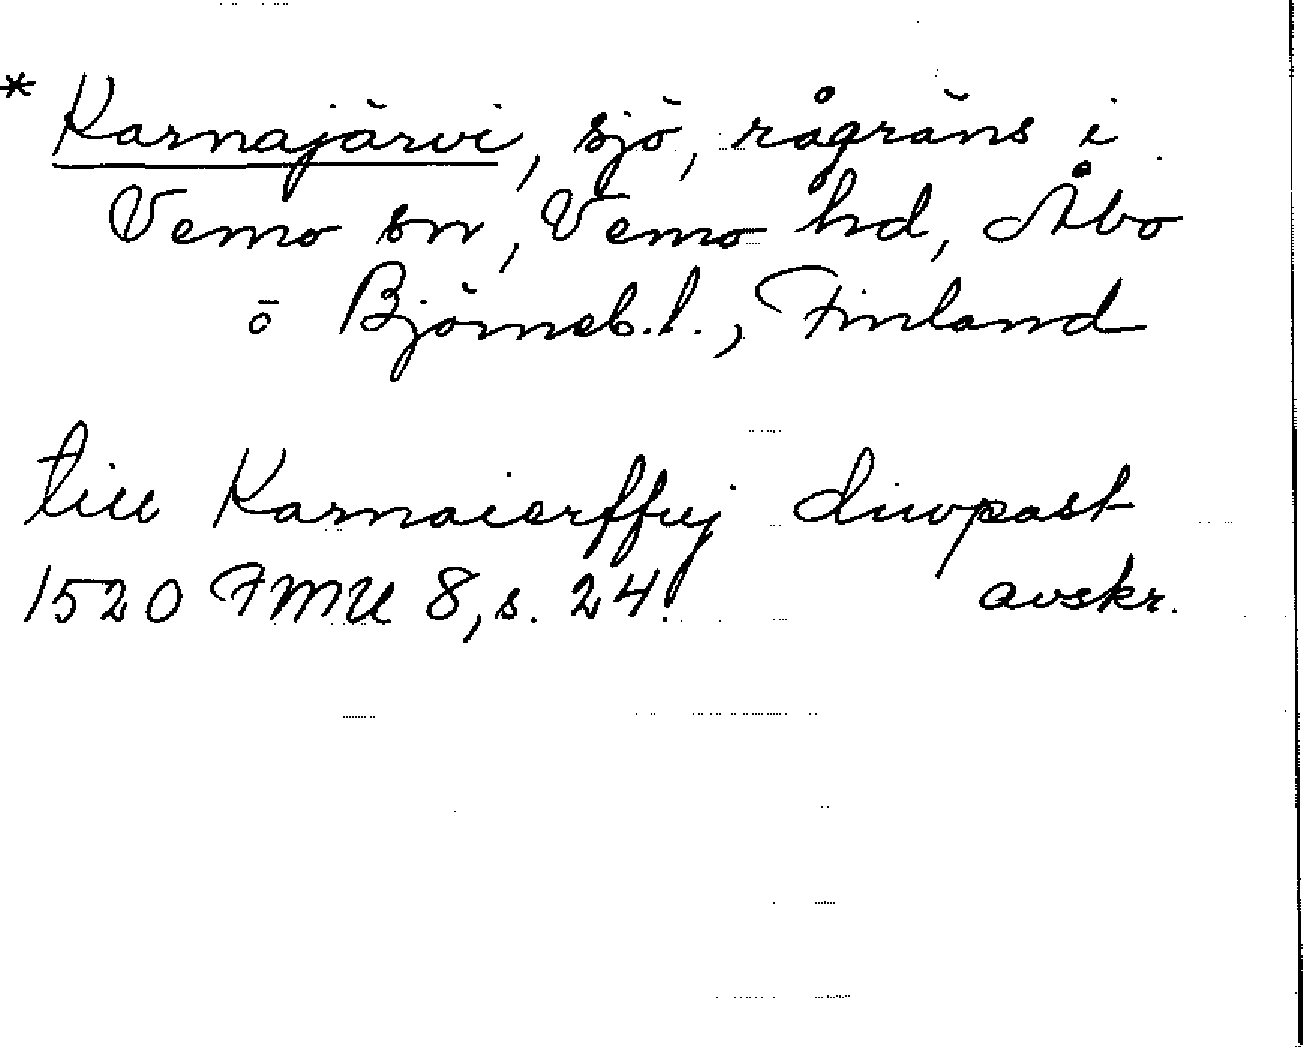 * Karnajärvi, sjö, rågräns i
Vemo sn, Vemo hd, Åbo
o Björneb.l., Finland
till Karnaierffuj diwpast
1520 FMU 8, s. 24. avskr.